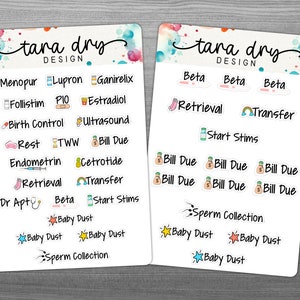 tara dry
DESIGN
Menopur Lupron Ganirelix
Follistim PIO Estradiol
Birth Control Ultrasound
Rest TWW Bill Due
Endometrin Cetrotide
Retrieval Transfer
Dr Apt Start Stims
Baby Dust
Baby Dust Baby Dust
Sperm Collection
tara dry
DESIGN
Beta Beta Beta
Retrieval Transfer
Start Stims
Bill Due Bill Due Bill Due
Bill Due Bill Due Bill Due
Sperm Collection
Baby Dust
Baby Dust Baby Dust